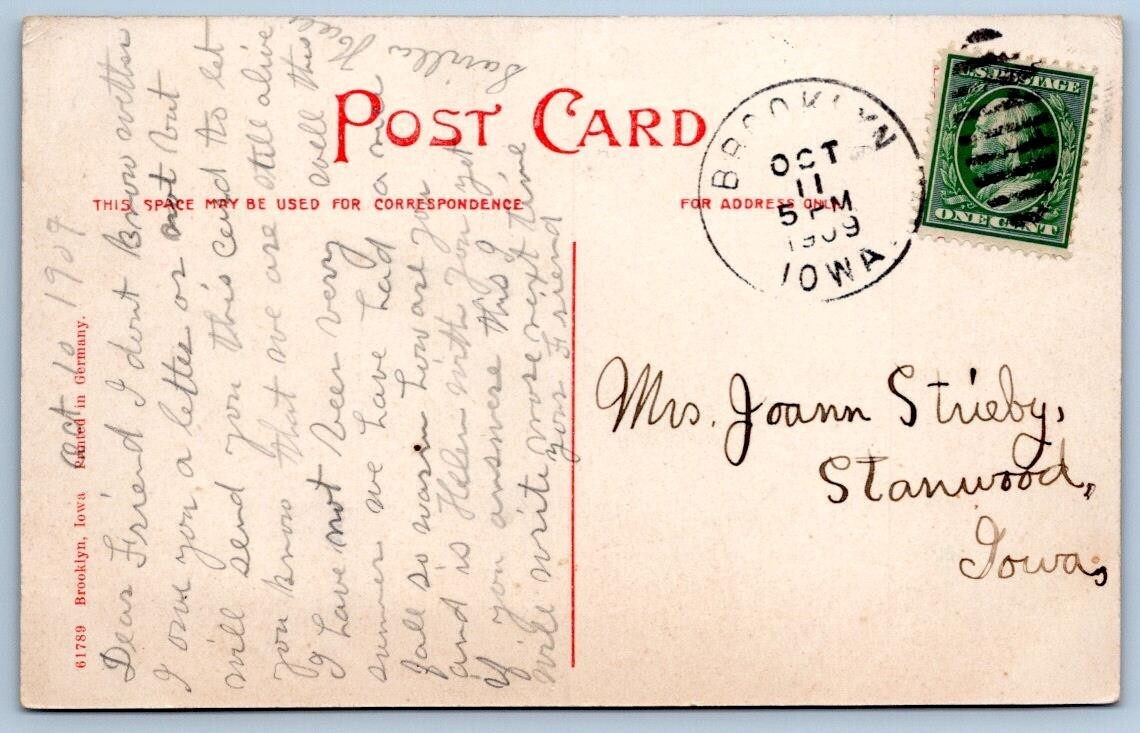 POST CARD
THIS SPACE MAY BE USED FOR CORRESPONDENCE
FOR ADDRESS ONLY
BROOKLYN
OCT
11
5 PM
1909
IOWA
U.S. POSTAGE
ONE CENT
61789 Brooklyn, Iowa Printed in Germany.
Oct 10 1909
Dear Friend I dont know wether
I owe you a letter or not but
will send you this card to let
you know that we are still alive
I have not been very well this
summer we have had a nice
fall so warm how are you
and is Helen with you yet
if you answere this I
will write more next time
your Friend
Mrs. Joann Strieby,
Stanwood,
Iowa,